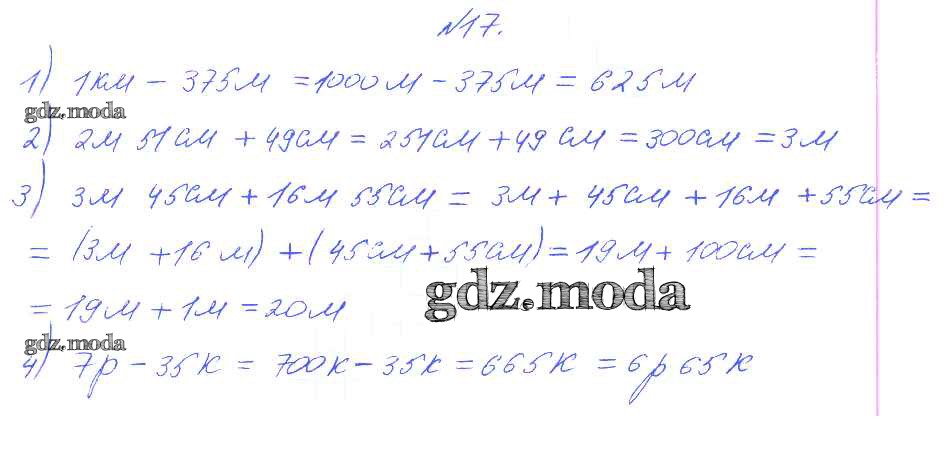 №17.
1) 1км - 375м = 1000м - 375м = 625м
gdz.moda
2) 2м 51см + 49см = 251см + 49 см = 300см = 3м
3) 3м 45см + 16м 55см = 3м + 45см + 16м + 55см =
= (3м + 16 м) + (45см + 55см) = 19м + 100см =
gdz.moda
= 19м + 1м = 20м
gdz.moda
4) 7р - 35к = 700к - 35к = 665к = 6р 65к